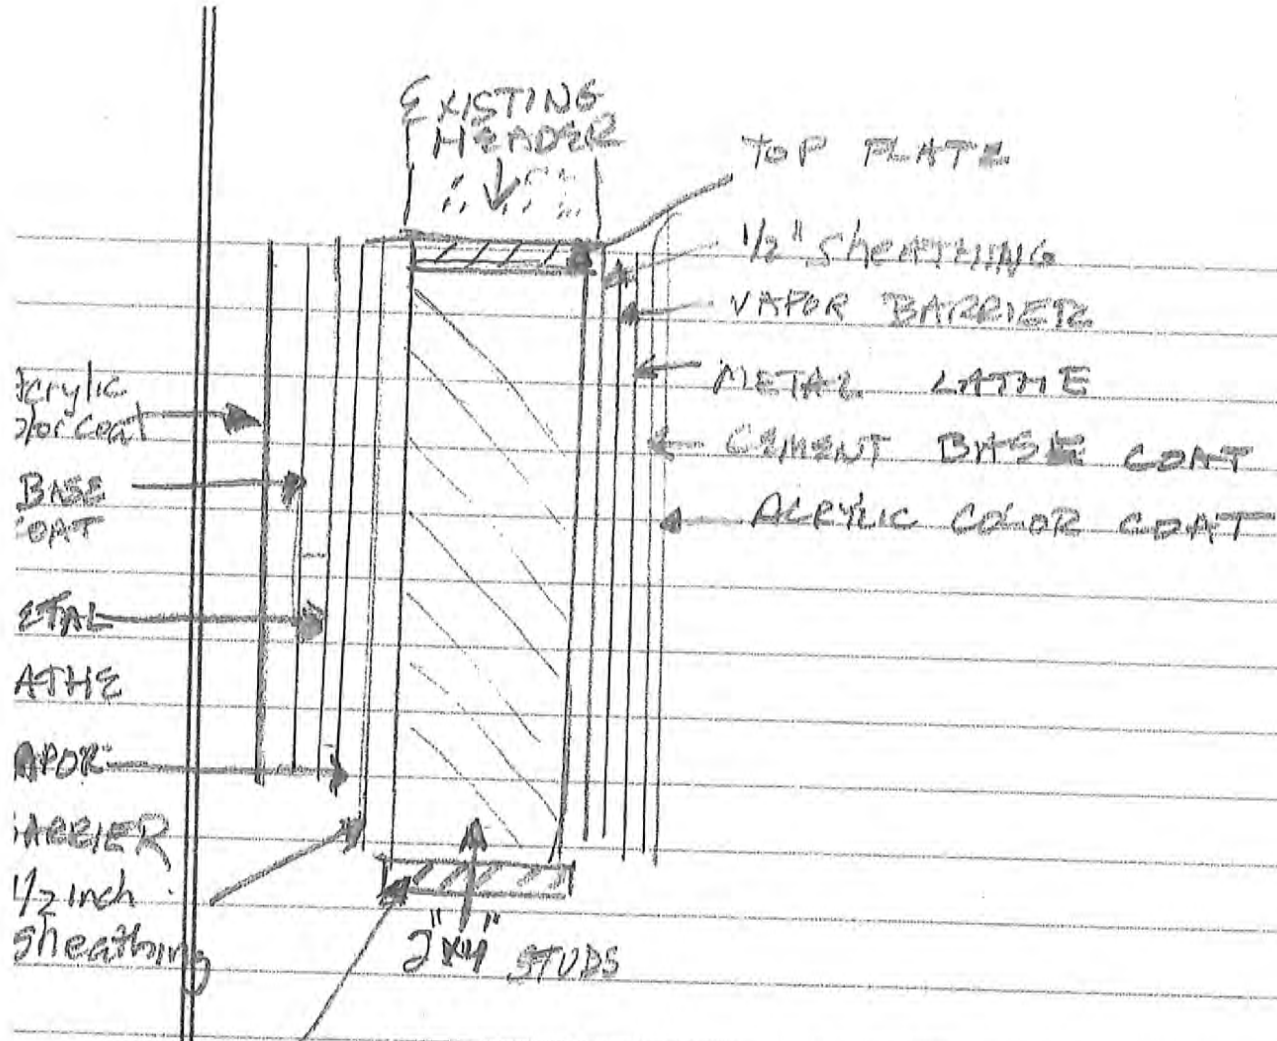 EXISTING
HEADER
TOP PLATE
1/2" SHEATHING
VAPOR BARRIER
METAL LATHE
CEMENT BASE COAT
ACRYLIC COLOR COAT
Acrylic
olor Coat
BASE
COAT
ETAL
ATHE
APOR
ARRIER
1/2 inch
Sheathing
2"X4" STUDS